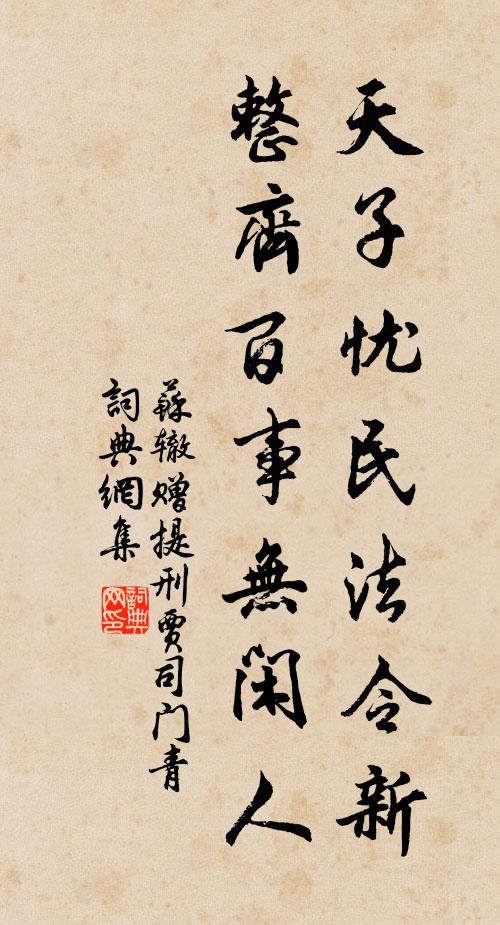 天子忧民法令新
整齊百事無閑人
蘇辙赠提刑賈司门青
詞典網集
詞典
网印